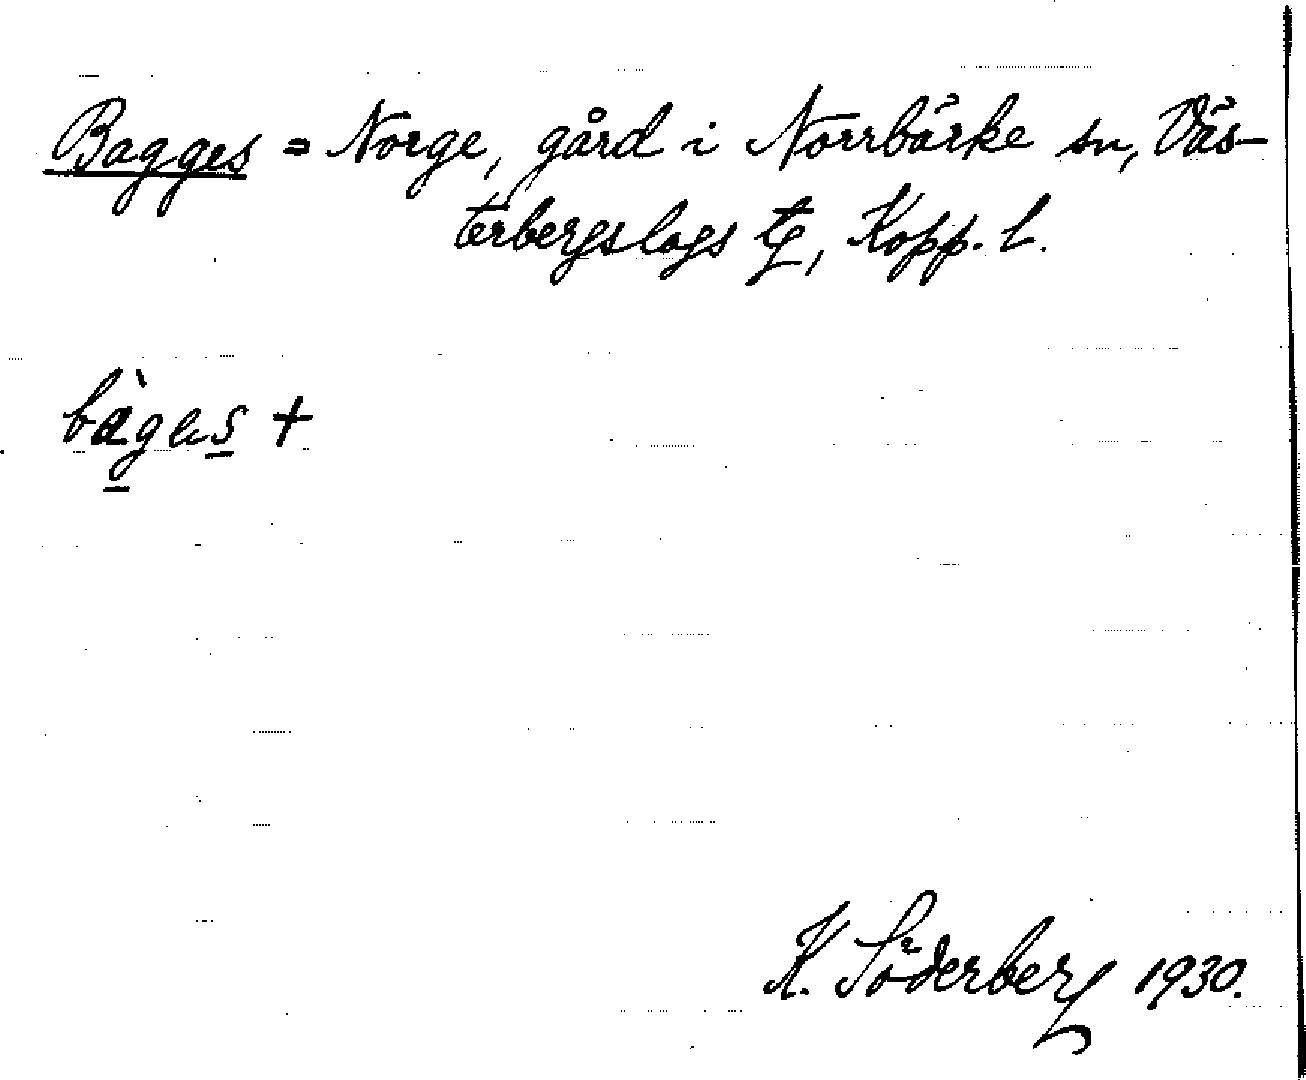 Bagges = Norge, gård i Norrbärke sn, Väs-
terbergslags tg, Kopp. l.
bàges +
K. Söderberg 1930.